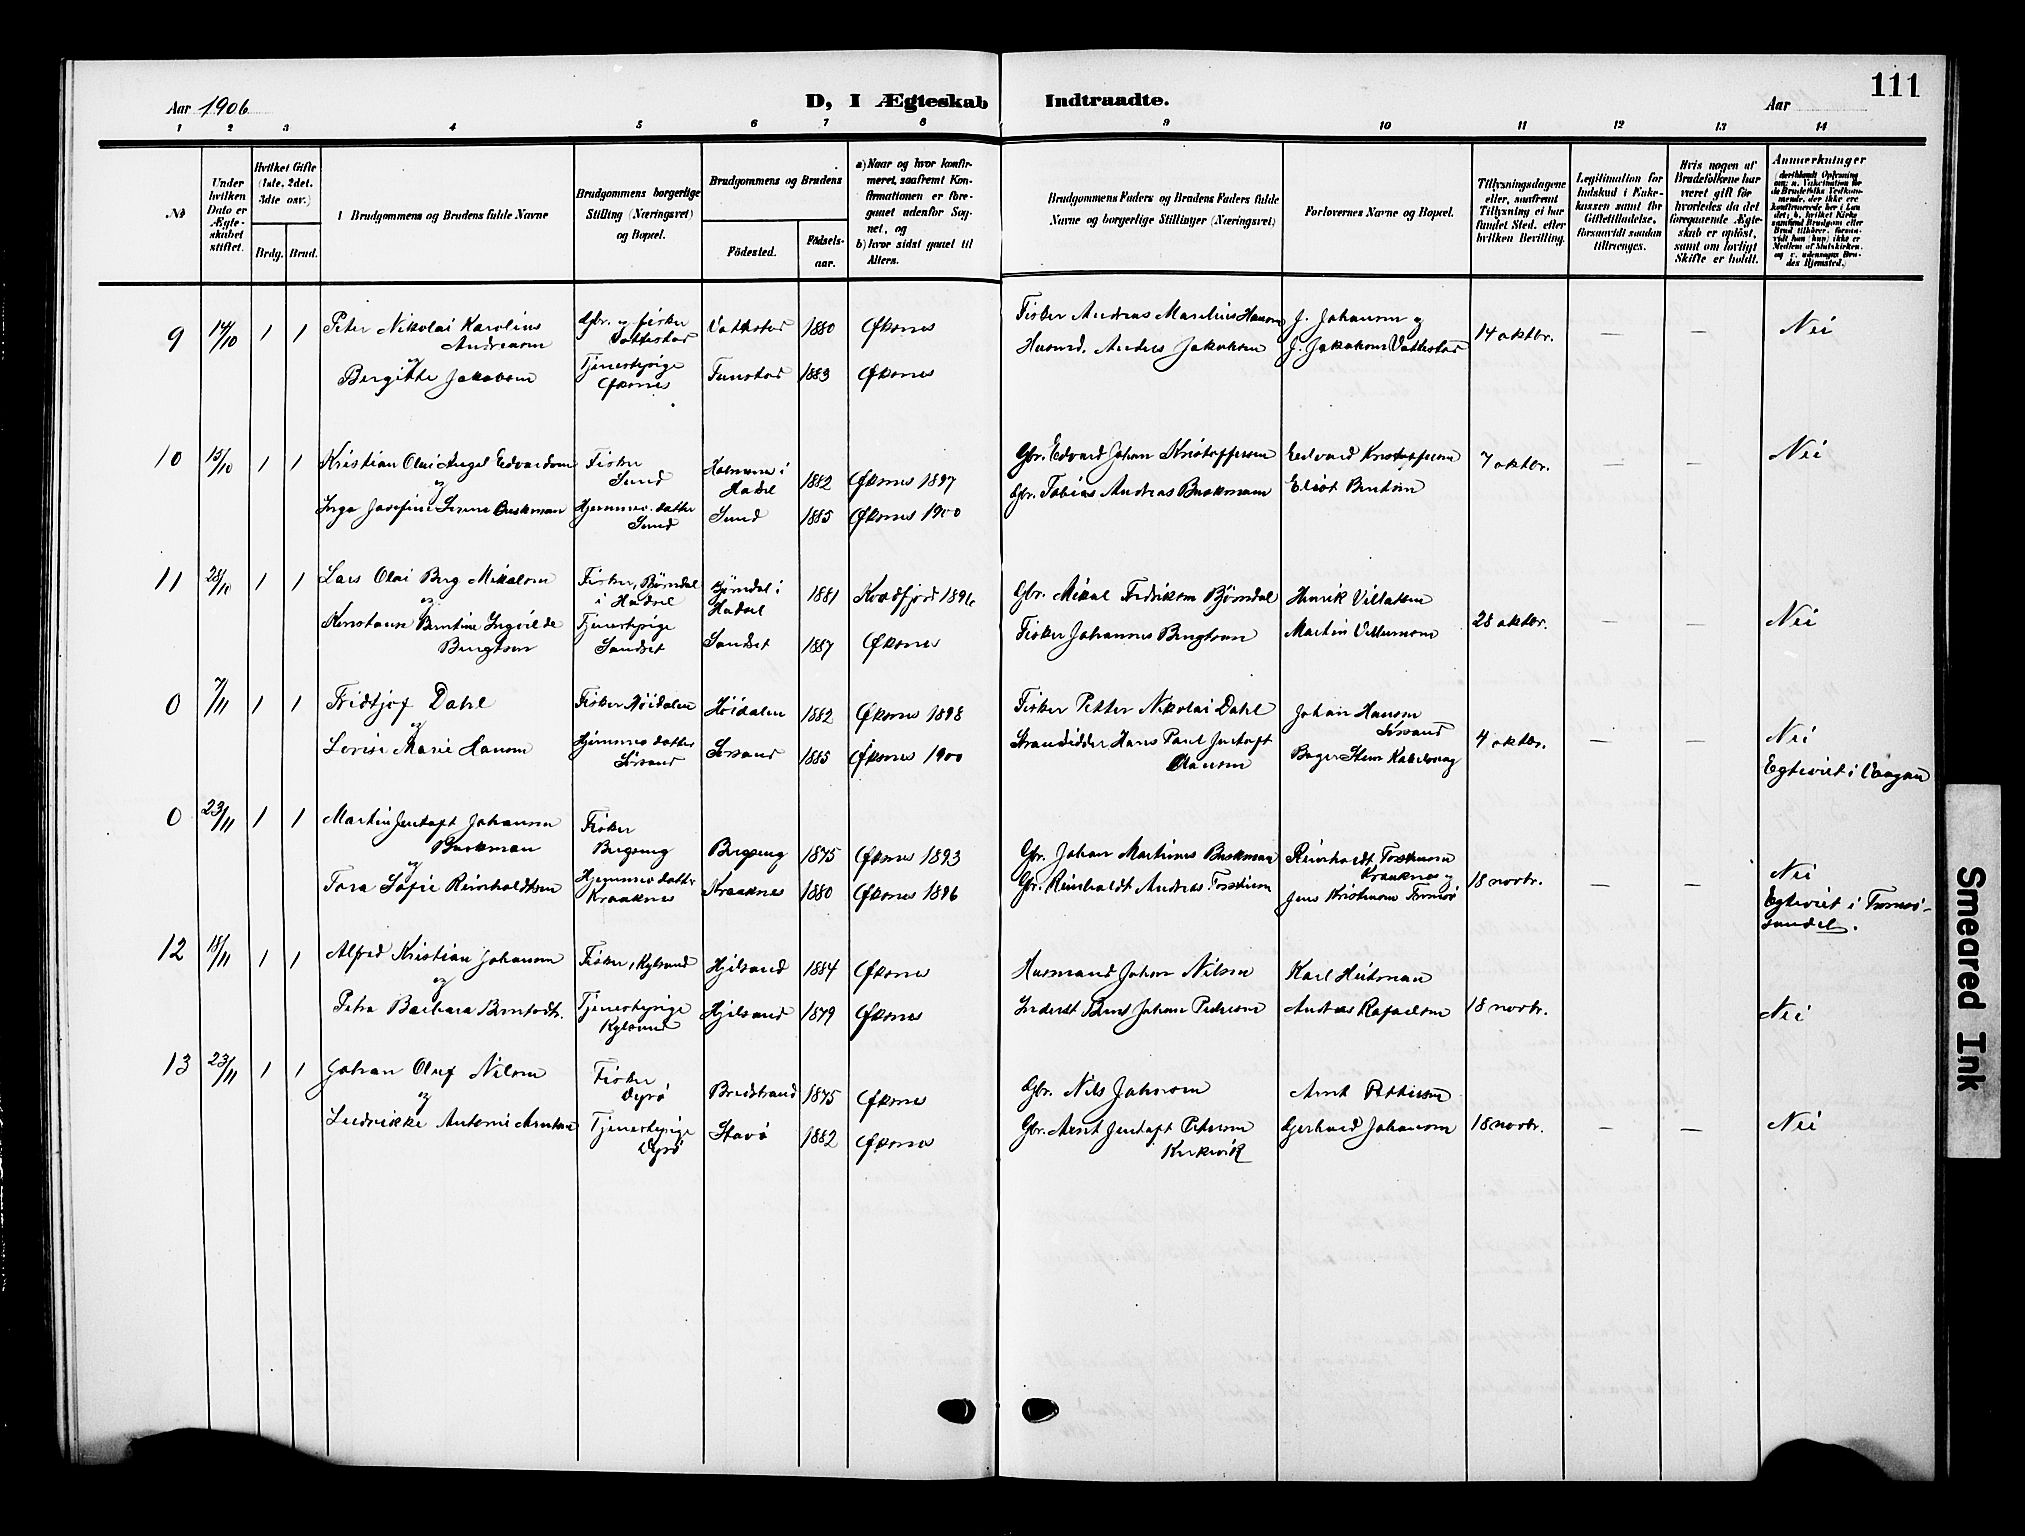 111
Aar 1906
D, I Ægteskab Indtraadte.
Aar
1 2 3 4 5 6 7 8 9 10 11 12 13 14
№
Under hvilken Dato er Ægteskabet stiftet.
Hvilket Gifte (1ste, 2det. 3die osv.)
Brdg. Brud.
Brudgommens og Brudens fulde Navne
Brudgommens borgerlige Stilling (Næringsvei) og Bopæl.
Brudgommens og Brudens
Födested.
Födselsaar.
a) Naar og hvor konfirmeret, saafremt Konfirmationen er foregaaet udenfor Sognet, og
b) hvor sidst gaaet til Alters.
Brudgommens Faders og Brudens Faders fulde Navne og borgerlige Stillinger (Næringsvei)
Forlovernes Navne og Bopæl.
Tillysningsdagene eller, saafremt Tillysning ei har fundet Sted, efter hvilken Bevilling.
Legitimation for Indskud i Enkekassen samt for Giftetilladelse, forsaavidt saadan tiltrænges.
Hvis nogen af Brudefolkene har været gift för hvorledes da det foregaaende Ægteskab er oplöst, samt om lovligt Skifte er holdt.
Anmærkninger
9 14/10 1 1 Peter Nikolai Karolius Andreasen
Gbr. og fisker Vottestad
Vottestad 1880 Øksnes
Fisker Andreas Marelius Hansen
J. Johansen og
14 oktbr. — — Nei
og
Bergitte Jakobsen
Tjenestepige Øksnes
Tunstad 1883 Øksnes
Husmd. Anders Jakobsen
J. Jakobsen Vottestad
10 15/10 1 1 Kristian Olai Angel Edvardsen
Fisker Sund
Holmene i Hadsel 1882 Øksnes 1897
Gbr. Edvard Johan Kristoffersen
Edvard Kristoffersen
7 oktbr. — — Nei
og
Inga Josefine Serine Buskman
Hjemmev. datter Sund
Sund 1885 Øksnes 1900
Gbr. Tobias Andreas Buskmann
Eliot Bentsen
11 28/10 1 1 Lars Olai Berg Mikalsen
Fisker, Børndal i Hadsel
Bjørndal i Hadsel 1881 Kvædfjord 1896
Gbr. Mikal Fredriksen Bjørndal
Henrik Villatsen
28 oktbr. — — Nei
og
Konstanse Bentine Ingvilde Bengtsen
Tjenestepige Sandset
Sandset 1887 Øksnes
Fisker Johannes Bengtsen
Martin Villumsen
0 7/11 1 1 Fridtjof Dahl
Fisker Høidalen
Høidalen 1882 Øksnes 1898
Fisker Petter Nikolai Dahl
Johan Hansen Sørsand
4 oktbr. — — Nei
og
Lovise Marie Hansen
Hjemmev. datter Sørsand
Sørsand 1885 Øksnes 1900
Strandsidder Hans Paul Jentoft Hansen
Bager Steen Kabelvaag
Egteviet i Vaagan
0 23/11 1 1 Martin Jentoft Johansen Buskman
Fisker Bergseng
Bergseng 1875 Øksnes 1893
Gbr. Johan Martinus Buskman
Reinholdt Torstensen Kraaknes og
18 novbr. — — Nei
og
Tora Sofie Reinholdtsen
Hjemmev. datter Kraaknes
Kraaknes 1880 Øksnes 1896
Gbr. Reinholdt Andreas Torstensen
Jens Kristensen Tromsø
Egteviet i Tromsøsundet.
12 18/11 1 1 Alfred Kristian Johansen
Fisker, Kylsand
Hjelsand 1884 Øksnes
Husmand Johan Nilsen
Karl Heitman
18 novbr. Nei
og
Petra Barbara Berntsdtr.
Tjenestepige Kylsand
Hjelsand 1879 Øksnes
Inderst Bernt Johan Pedersen
Andreas Rafaelsen
13 23/11 1 1 Johan Oluf Nilsen
Fisker Dyrø
Bredstrand 1875 Øksnes
Gbr. Nils Johnsen
Arnt Pettersen
18 novbr. — — Nei
og
Ludrikke Antonie Arntsen
Tjenestepige Dyrø
Stavø 1882 Øksnes
Gbr. Arnt Jentoft Petersen Kirkvik
Gerhard Johansen
Smeared Ink